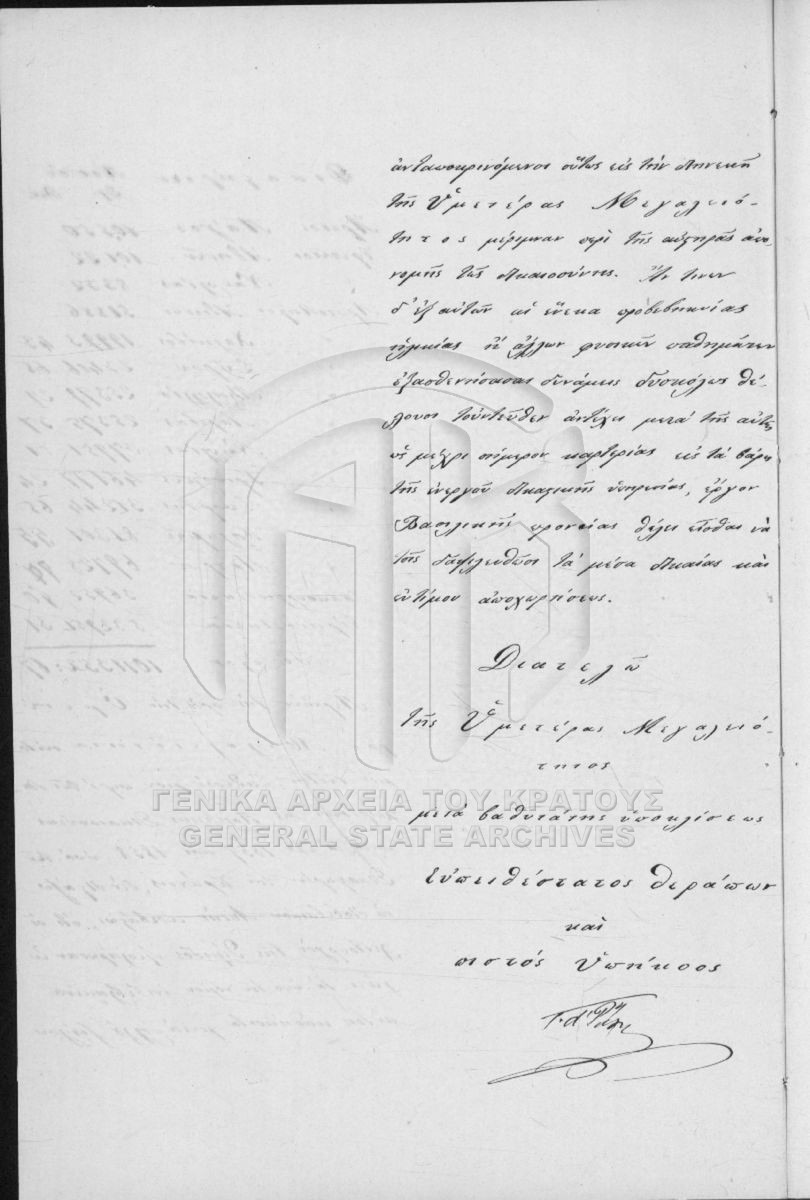 ἀνταποκρινόμενοι οὕτως εἰς τὴν διηνεκῆ
τῆς Ὑμετέρας Μεγαλειό-
τητος μέριμναν περὶ τῆς αὐστηρᾶς ἀπο-
νομῆς τῆς δικαιοσύνης. Ἄν τινων
δ' ἐξ αὐτῶν αἱ ἕνεκα προβεβηκυίας
ἡλικίας ἢ ἄλλων φυσικῶν παθημάτων
ἐξασθενήσασαι δυνάμεις δυσκόλως θέ-
λουσι τοὐντεῦθεν ἀντέχει μετὰ τῆς αὐτῆς
ὡς μέχρι σήμερον καρτερίας εἰς τὰ βάρη
τῆς ἐνεργοῦ δικαστικῆς ὑπηρεσίας, ἔργον
Βασιλικῆς προνοίας θέλει εἶσθαι νὰ
τοῖς δαψιλευθῶσι τὰ μέσα δικαίας καὶ
ἐντίμου ἀποχωρήσεως.
Διατελῶ
τῆς Ὑμετέρας Μεγαλειό-
τητος
ΓΕΝΙΚΑ ΑΡΧΕΙΑ ΤΟΥ ΚΡΑΤΟΥΣ
μετὰ βαθυτάτης ὑποκλίσεως
GENERAL STATE ARCHIVES
Εὐπειθέστατος θεράπων
καὶ
πιστὸς Ὑπήκοος